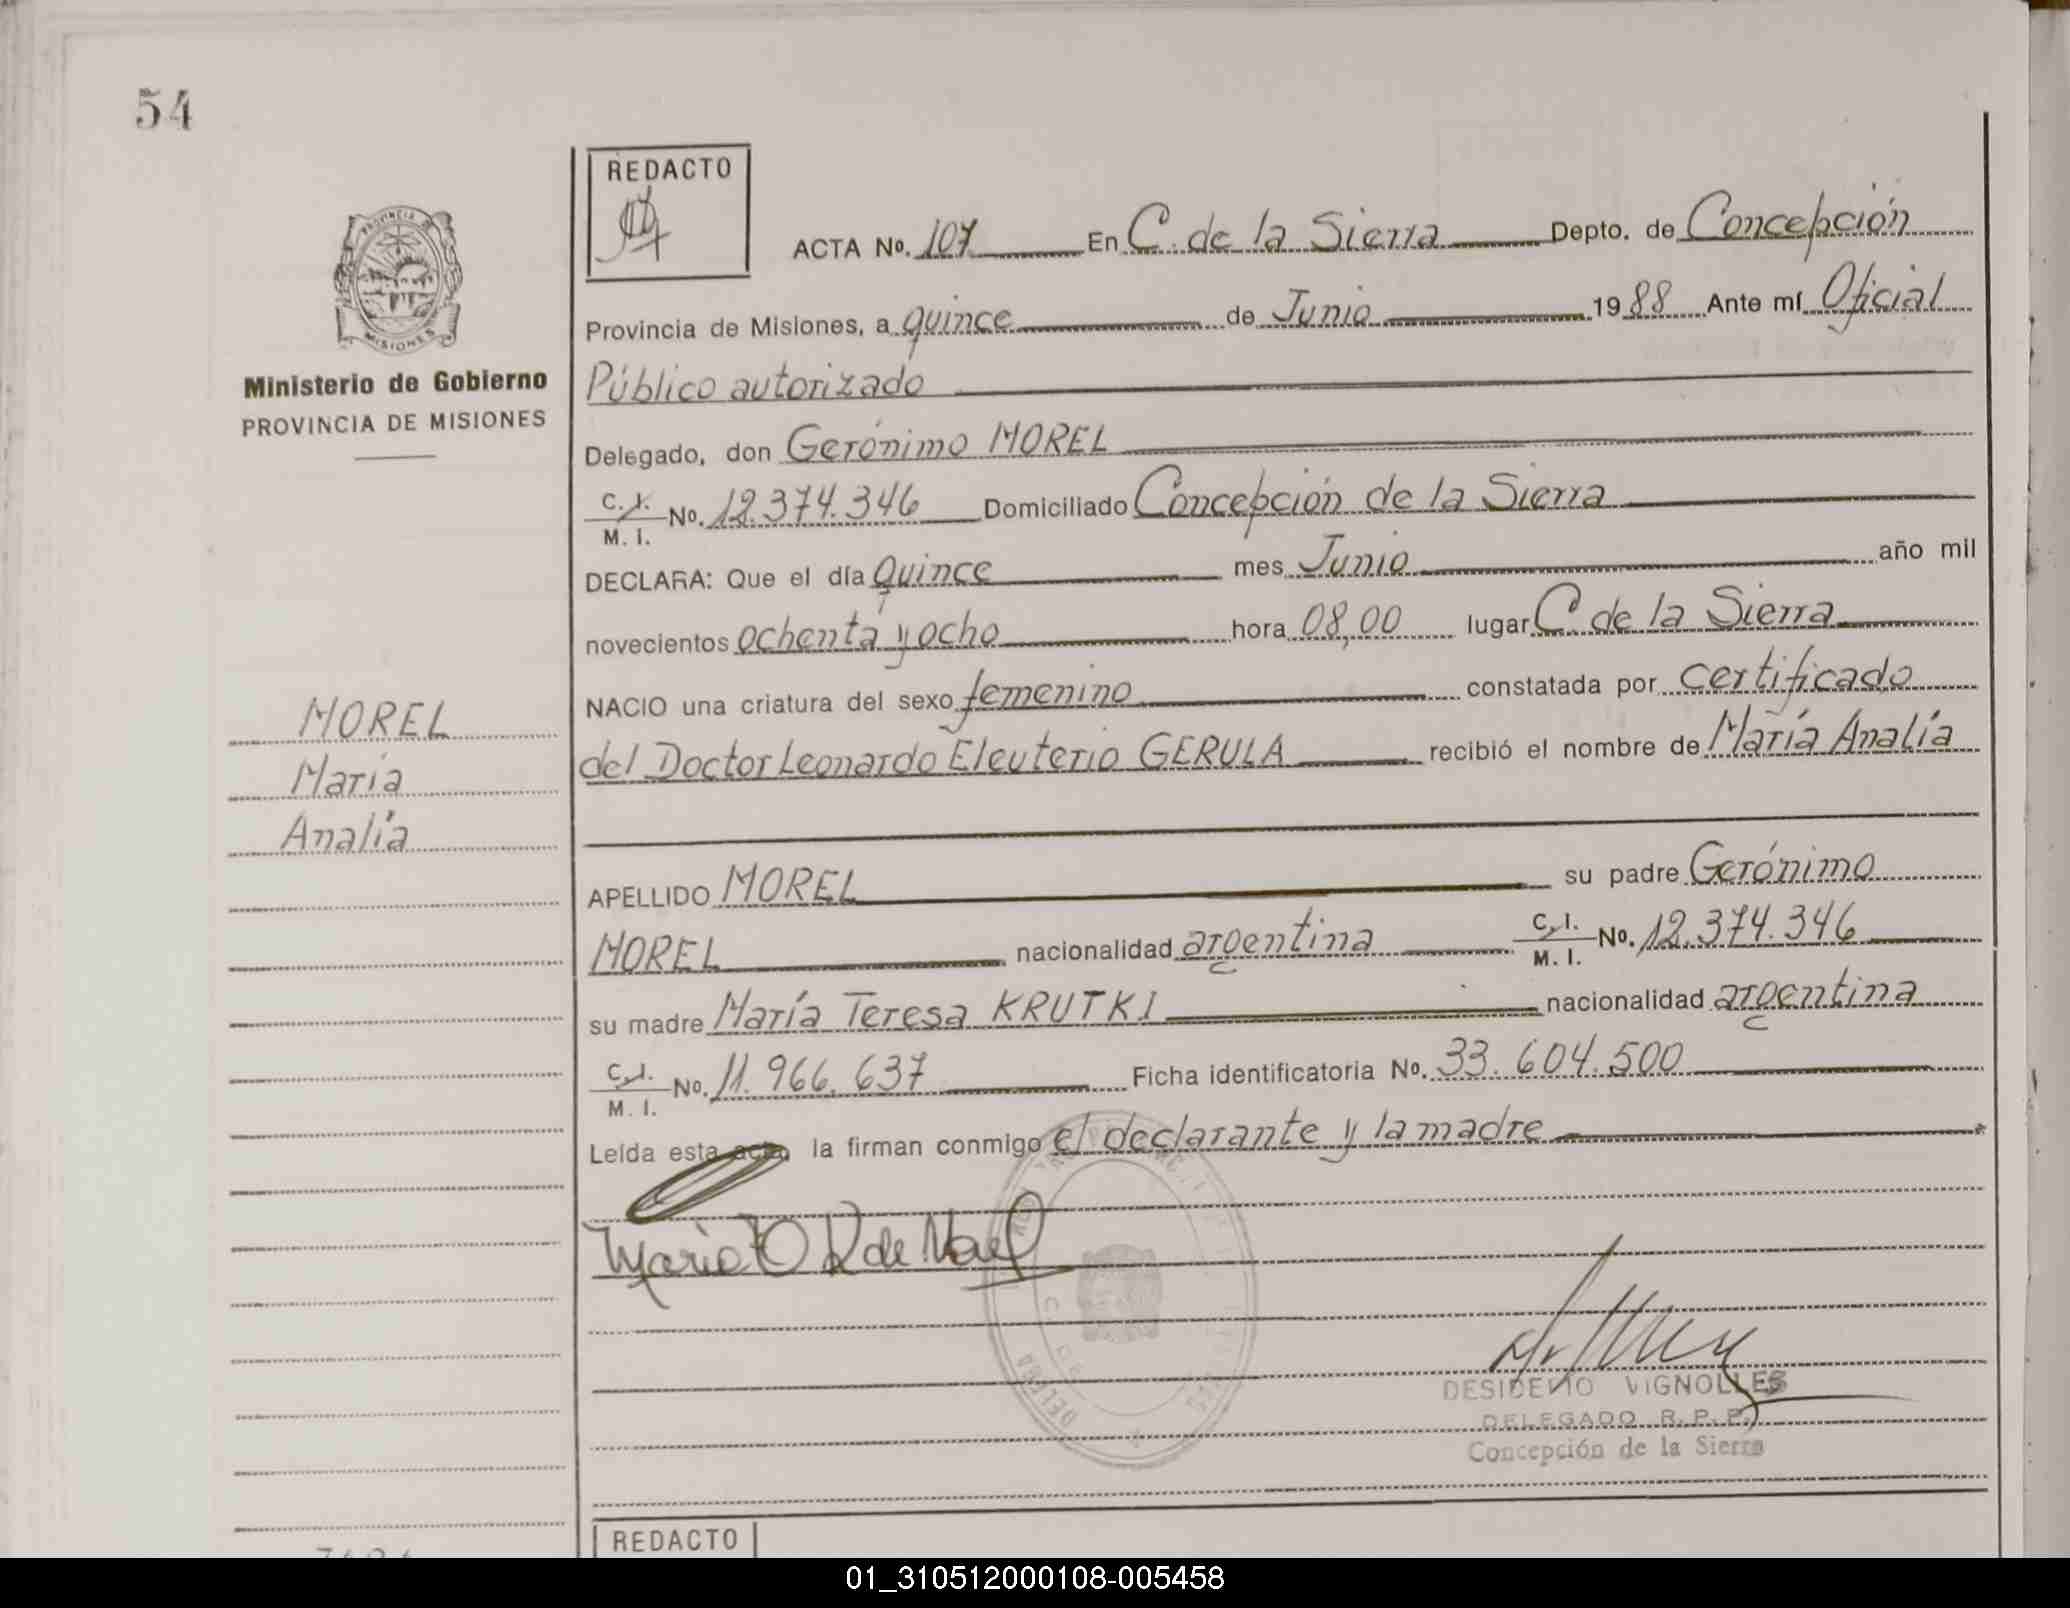 54
REDACTO
ACTA No. 107 En C. de la Sierra Depto. de Concepción
Provincia de Misiones, a quince de Junio 1988 Ante mí Oficial
Público autorizado
PROVINCIA DE
MISIONES
Ministerio de Gobierno
PROVINCIA DE MISIONES
Delegado, don Gerónimo MOREL
C. I. M. I. No. 12.374.346 Domiciliado Concepción de la Sierra
DECLARA: Que el día Quince mes Junio año mil
novecientos ochenta y ocho hora 08,00 lugar C de la Sierra
NACIO una criatura del sexo femenino constatada por certificado
del Doctor Leonardo Eleuterio GERULA recibió el nombre de María Analía
MOREL
María
Analía
APELLIDO MOREL su padre Gerónimo
MOREL nacionalidad argentina C. I. M. I. No. 12.374.346
su madre María Teresa KRUTKI nacionalidad argentina
C. I. M. I. No. 11.966.637 Ficha identificatoria No. 33.604.500
Leída esta acta, la firman conmigo el declarante y la madre
DESIDERIO VIGNOLLES
DELEGADO R. P. P.
Concepción de la Sierra
REDACTO
01_310512000108-005458